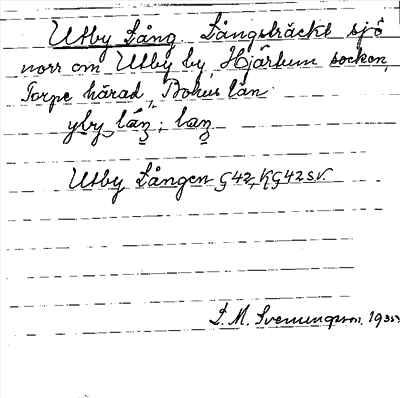 Utby Lång. Långsträckt sjö
norr om Utby by, Hjärtum socken,
Torpe härad, Bohus län.
Utby Lången G42, KG42SV.
S. M. Svenungsson, 1935